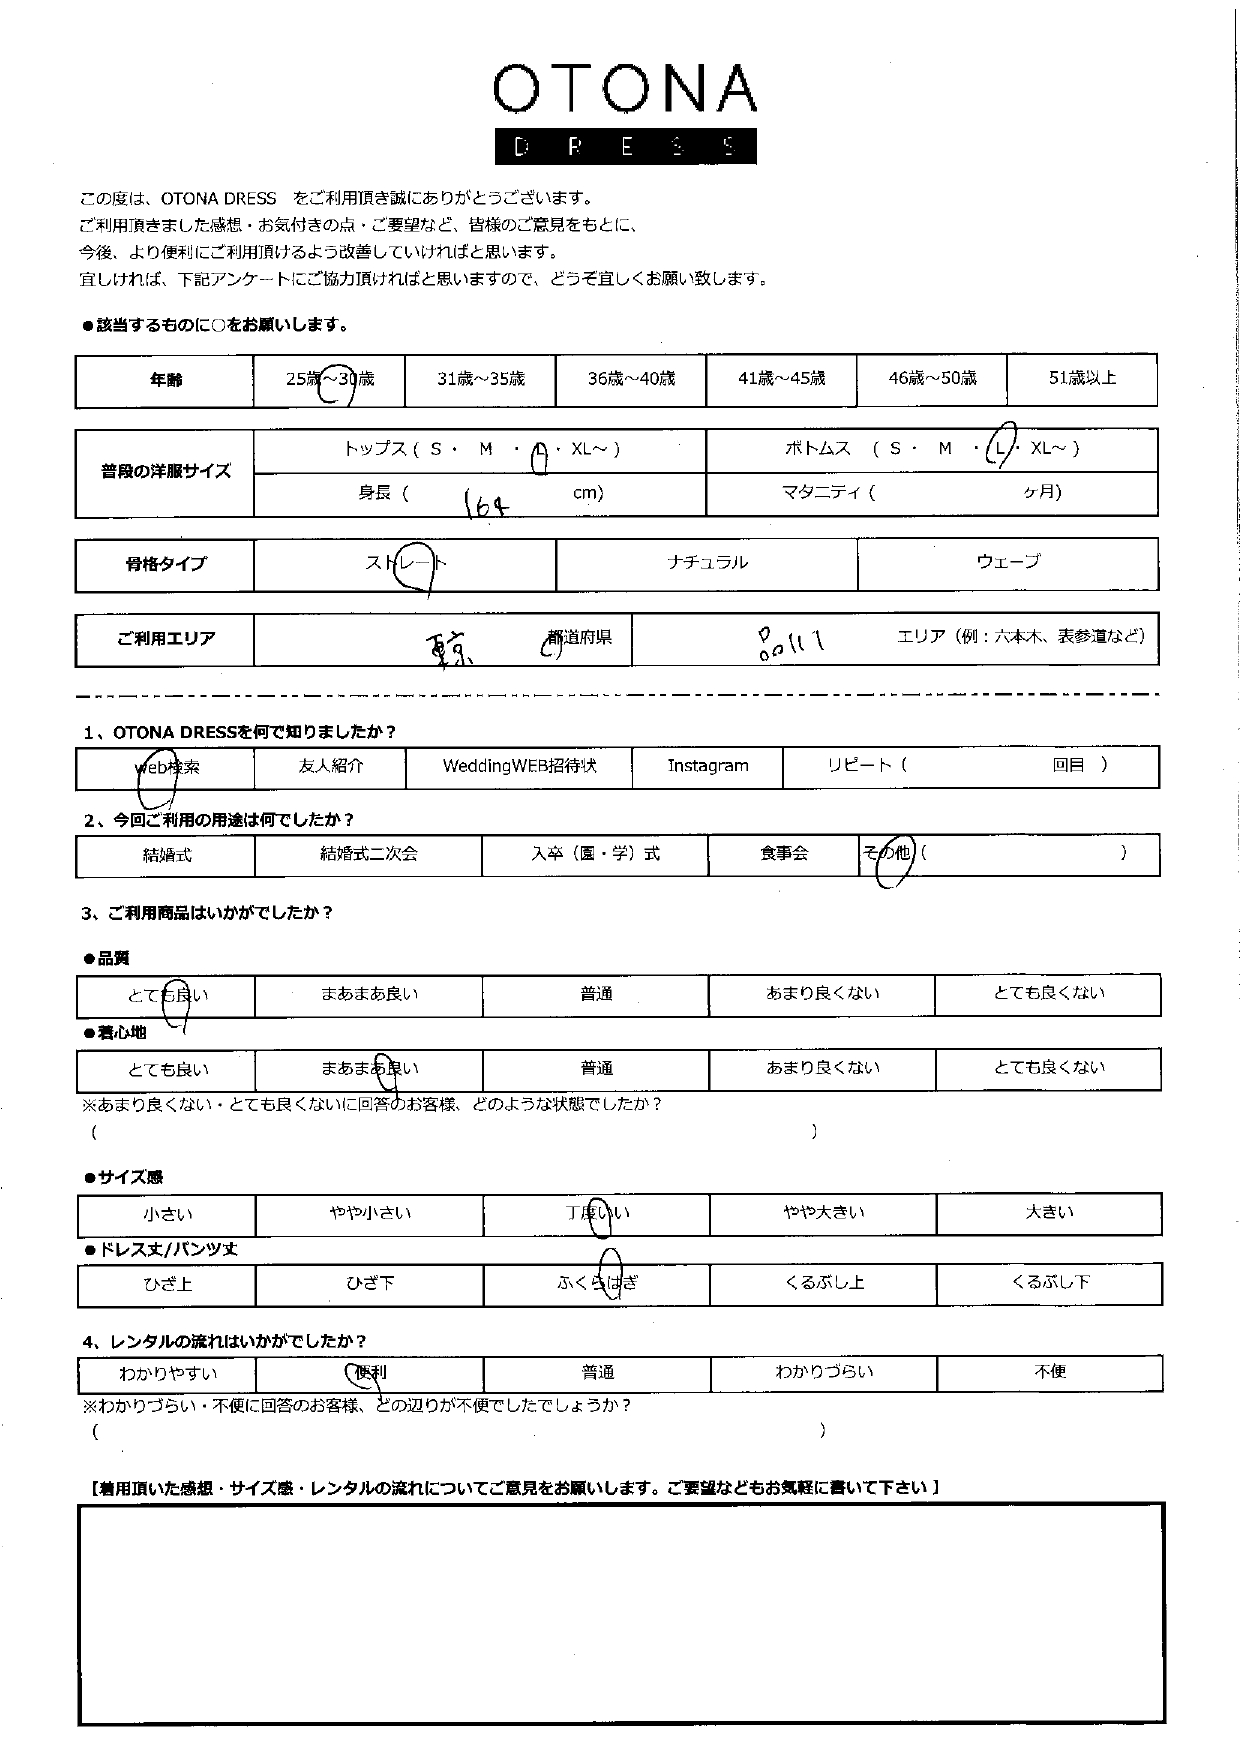 OTONA
DRESS
この度は、OTONA DRESS　をご利用頂き誠にありがとうございます。
ご利用頂きました感想・お気付きの点・ご要望など、皆様のご意見をもとに、
今後、より便利にご利用頂けるよう改善していければと思います。
宜しければ、下記アンケートにご協力頂ければと思いますので、どうぞ宜しくお願い致します。
●該当するものに○をお願いします。
年齢 25歳～30歳 31歳～35歳 36歳～40歳 41歳～45歳 46歳～50歳 51歳以上
普段の洋服サイズ トップス ( S ・ M ・ L ・ XL～ ) ボトムス ( S ・ M ・ L ・ XL～ )
身長 ( 164 cm) マタニティ ( ヶ月)
骨格タイプ ストレート ナチュラル ウェーブ
ご利用エリア 東京 都道府県 品川 エリア（例：六本木、表参道など）
1、OTONA DRESSを何で知りましたか？
web検索 友人紹介 WeddingWEB招待状 Instagram リピート ( 回目 )
2、今回ご利用の用途は何でしたか？
結婚式 結婚式二次会 入卒（園・学）式 食事会 その他 ( )
3、ご利用商品はいかがでしたか？
●品質
とても良い まあまあ良い 普通 あまり良くない とても良くない
●着心地
とても良い まあまあ良い 普通 あまり良くない とても良くない
※あまり良くない・とても良くないに回答のお客様、どのような状態でしたか？
( )
●サイズ感
小さい やや小さい 丁度いい やや大きい 大きい
●ドレス丈/パンツ丈
ひざ上 ひざ下 ふくらはぎ くるぶし上 くるぶし下
4、レンタルの流れはいかがでしたか？
わかりやすい 便利 普通 わかりづらい 不便
※わかりづらい・不便に回答のお客様、どの辺りが不便でしたでしょうか？
( )
【着用頂いた感想・サイズ感・レンタルの流れについてご意見をお願いします。ご要望などもお気軽に書いて下さい】